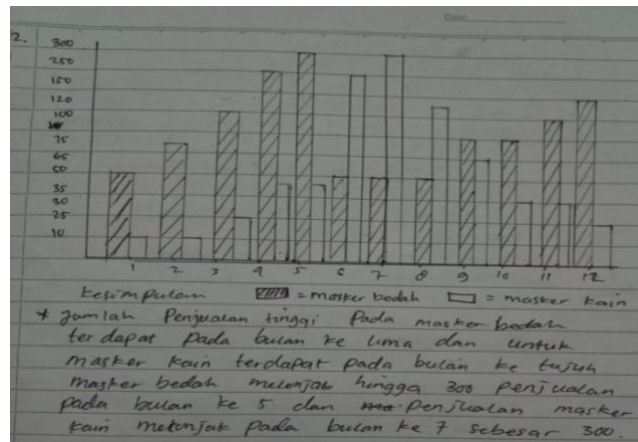 Date:
2.
300
250
150
120
100
75
65
50
35
30
25
10
1 2 3 4 5 6 7 8 9 10 11 12
Kesimpulan = masker bedah = masker kain
* Jumlah Penjualan tinggi Pada masker bedah
terdapat pada bulan ke lima dan untuk
masker kain terdapat pada bulan ke tujuh
masker bedah melonjak hingga 300 penjualan
pada bulan ke 5 dan penjualan masker
kain melonjak pada bulan ke 7 sebesar 300.